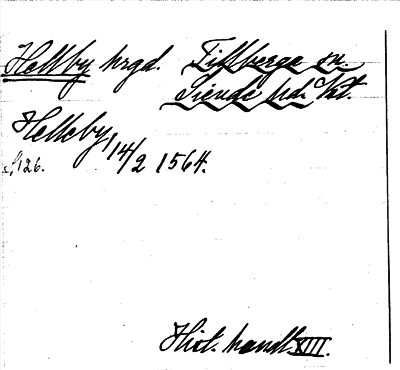 Hellby hrgd. Tillberga sn.
Siende hd. Vst.
Helleby, 14/2 1564.
s. 126.
Hist. handl. XIII.